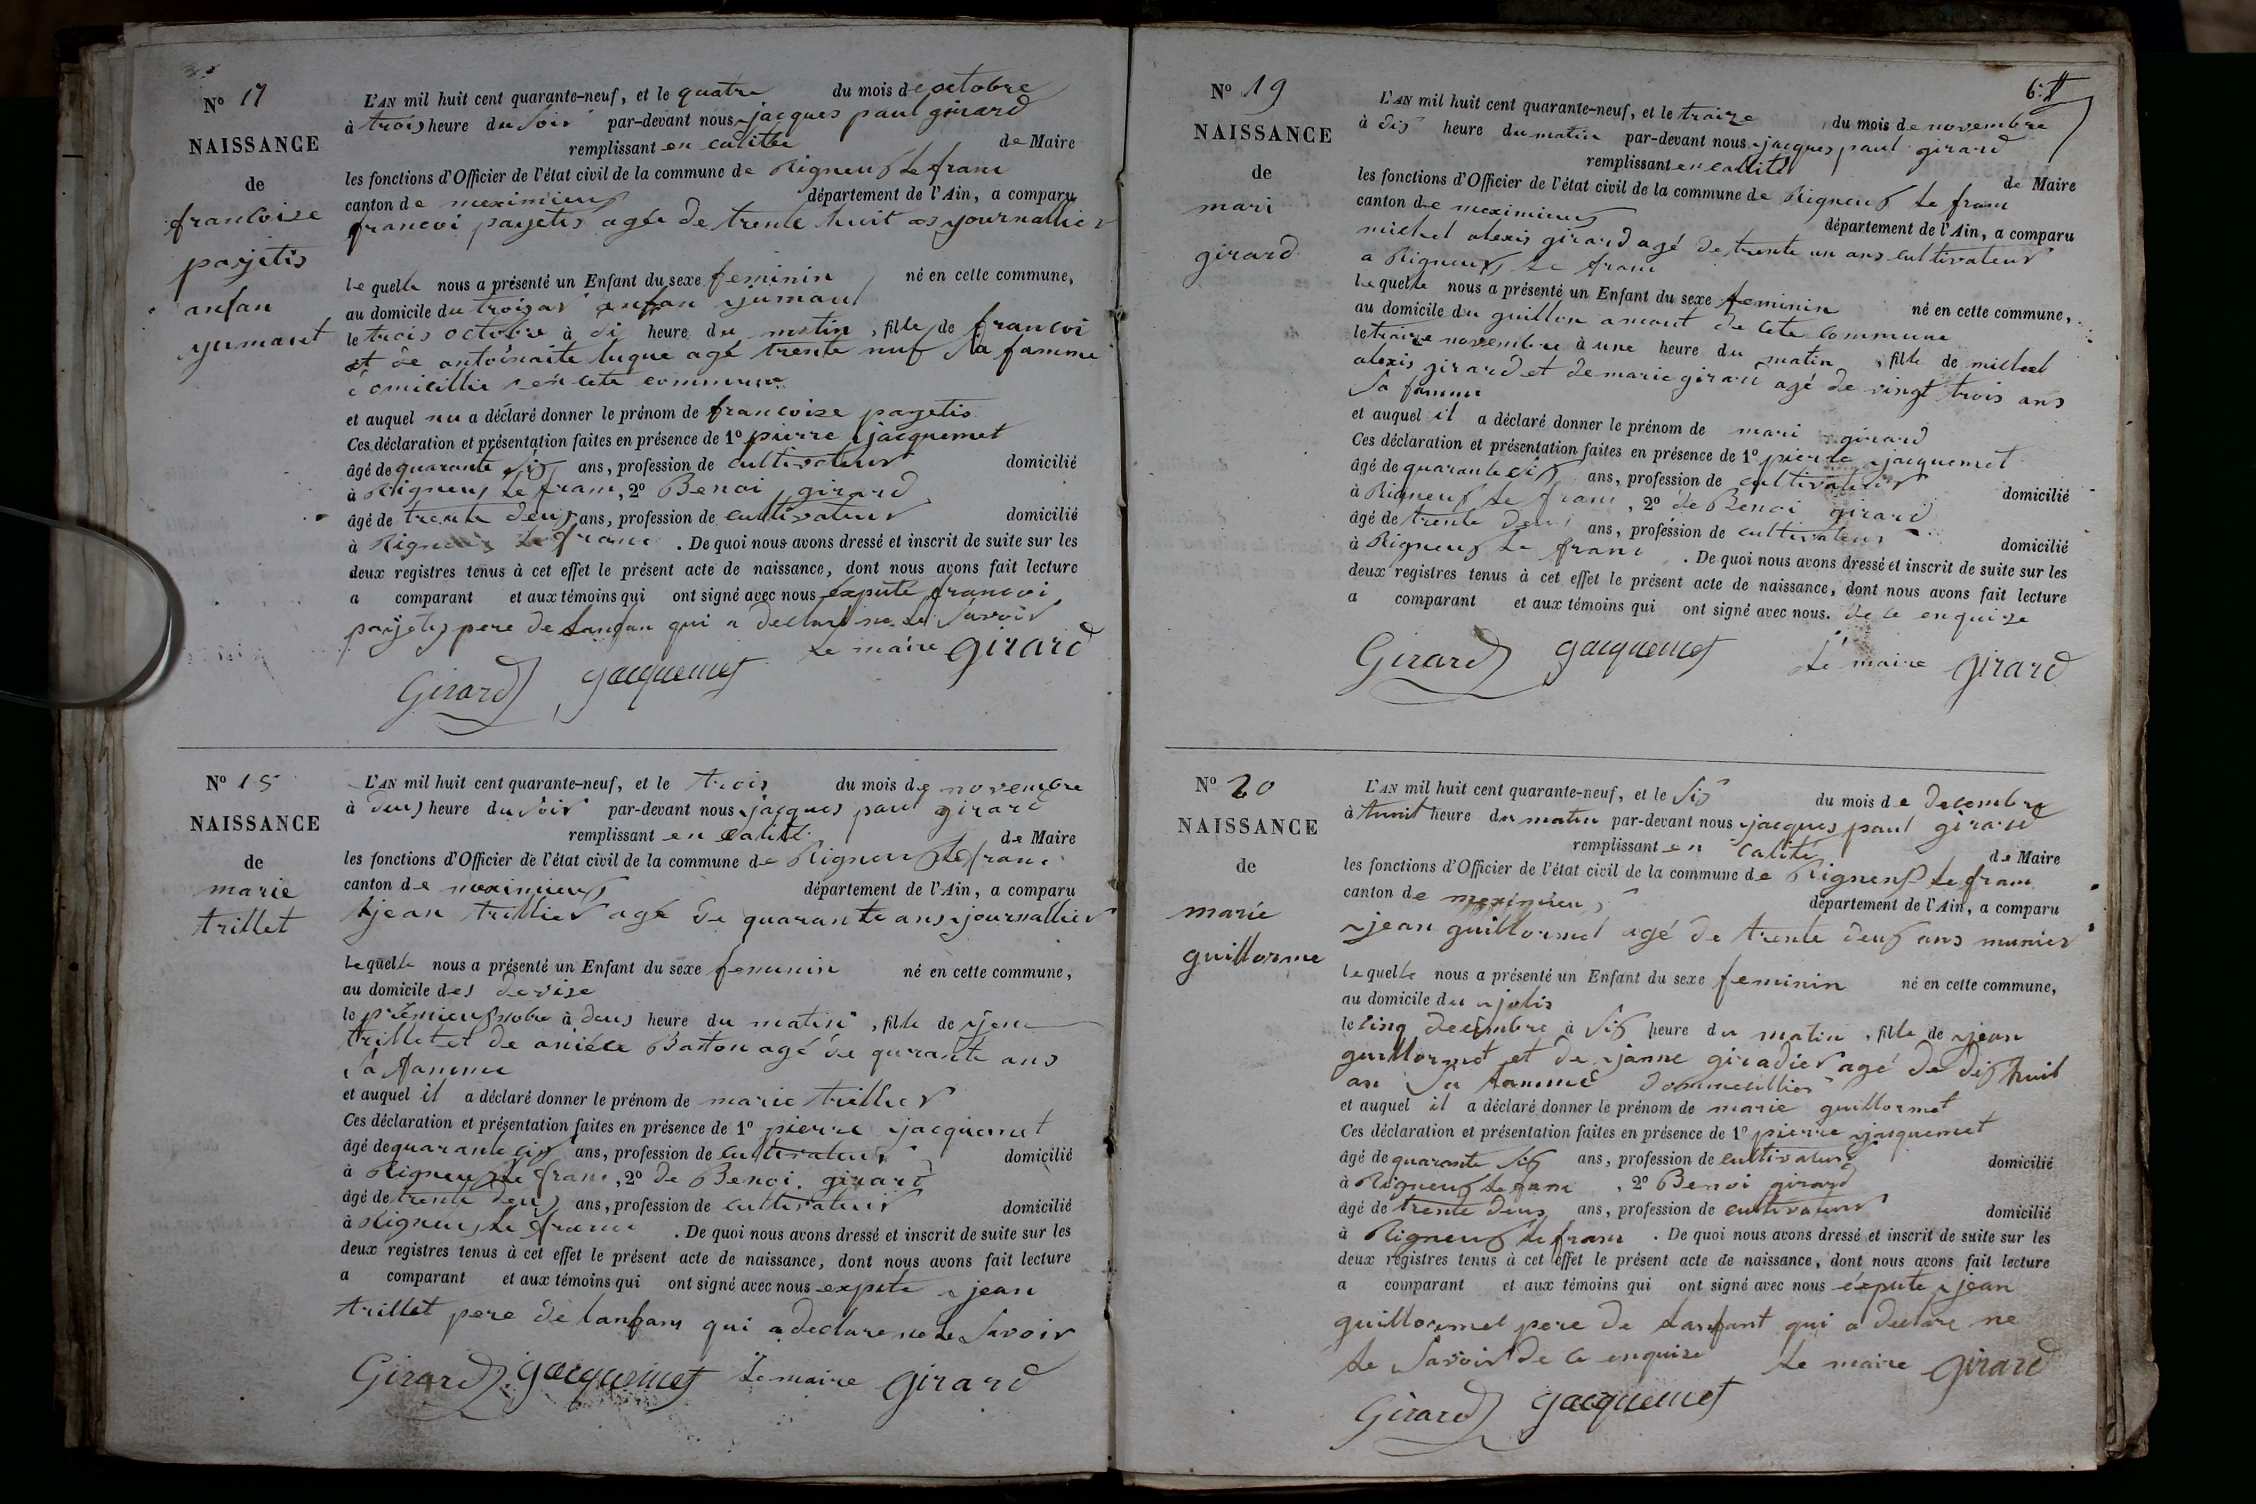 N° 17
NAISSANCE
de
francoise
payetis
anfan
yumant
L'AN mil huit cent quarante-neuf, et le quatre du mois de octobre
à trois heure du soir par-devant nous jacques paul girard
remplissant en calitée de Maire
les fonctions d'Officier de l'état civil de la commune de Rigneux le franc
canton de meximieux département de l'Ain, a comparu
francoi payetis agée de trente huit as journallier
lequelle nous a présenté un Enfant du sexe feminin né en cette commune,
au domicile du anfan yumant
le trois octobre à di heure du matin, fille de francoi
et de antoinaite luque agé trente nuf sa famme
domicillie en cete commune
et auquel nu a déclaré donner le prénom de francoise payetis
Ces déclaration et présentation faites en présence de 1° pierre jacquemet
âgé de quarante six ans, profession de cultivateur domicilié
à Rigneux le franc, 2° Benoi girard
âgé de trente deux ans, profession de cultivateur domicilié
à Rigneux le franc. De quoi nous avons dressé et inscrit de suite sur les
deux registres tenus à cet effet le présent acte de naissance, dont nous avons fait lecture
a comparant et aux témoins qui ont signé avec nous expute francoi
payetis pere de lanfan qui a declare ne le savoir
le maire girard
Girard jacquemet
N° 15
NAISSANCE
de
marie
trillet
L'AN mil huit cent quarante-neuf, et le trois du mois de novembre
à deux heure du soir par-devant nous jacques paul girard
remplissant en calité de Maire
les fonctions d'Officier de l'état civil de la commune de Rigneux le franc
canton de meximieux département de l'Ain, a comparu
jean trillier agé de quarante ans journallier
lequelle nous a présenté un Enfant du sexe feminin né en cette commune,
au domicile des devise
le premieux à deux heure du matin, fille de jean
trillet et de aniéce Baston agé de qurante ans
sa famme
et auquel il a déclaré donner le prénom de marie trillier
Ces déclaration et présentation faites en présence de 1° pierre jacquemet
âgé de quarante six ans, profession de cultivateur domicilié
à Rigneux le franc, 2° de Benoi girard
âgé de trente deux ans, profession de cultivateur domicilié
à Rigneux le franc. De quoi nous avons dressé et inscrit de suite sur les
deux registres tenus à cet effet le présent acte de naissance, dont nous avons fait lecture
a comparant et aux témoins qui ont signé avec nous expete jean
trillet pere de lanfant qui a declare ne le savoir
Girard jacquemet le maire girard
6
N° 19
NAISSANCE
de
mari
girard
L'AN mil huit cent quarante-neuf, et le traize du mois de novembre
à dis heure du matin par-devant nous jacques paul girard
remplissant en calité de Maire
les fonctions d'Officier de l'état civil de la commune de Rigneux le franc
canton de meximieux département de l'Ain, a comparu
michel alexis girard agé de trente un ans cultivateur
a Rigneux le franc
lequelle nous a présenté un Enfant du sexe feminin né en cette commune,
au domicile du guillon amont de cete commune
le traize novembre à une heure du matin, fille de michel
alexis girard et de marie girard agé de vingt trois ans
sa famme
et auquel il a déclaré donner le prénom de mari girard
Ces déclaration et présentation faites en présence de 1° pierre jacquemet
âgé de quarante six ans, profession de cultivateur domicilié
à Rigneux le franc, 2° de Benoi girard
âgé de trente deux ans, profession de cultivateur domicilié
à Rigneux le franc. De quoi nous avons dressé et inscrit de suite sur les
deux registres tenus à cet effet le présent acte de naissance, dont nous avons fait lecture
a comparant et aux témoins qui ont signé avec nous. de ce enquize
Girard jacquemet le maire girard
N° 20
NAISSANCE
de
marie
guillorme
L'AN mil huit cent quarante-neuf, et le six du mois de decembre
à huit heure du matin par-devant nous jacques paul girard
remplissant en calité de Maire
les fonctions d'Officier de l'état civil de la commune de Rigneux le franc
canton de meximieux département de l'Ain, a comparu
jean guillormet agé de trente deux ans munier
lequelle nous a présenté un Enfant du sexe feminin né en cette commune,
au domicile du jolis
le cinq decembre à six heure du matin, fille de jean
guillormet et de janne giradier agé de dix huit
an sa famme dommecillier
et auquel il a déclaré donner le prénom de marie guillormet
Ces déclaration et présentation faites en présence de 1° pierre jacquemet
âgé de quarante six ans, profession de cultivateur domicilié
à Rigneux le franc, 2° Benoi girard
âgé de trente deux ans, profession de cultivateur domicilié
à Rigneux le franc. De quoi nous avons dressé et inscrit de suite sur les
deux registres tenus à cet effet le présent acte de naissance, dont nous avons fait lecture
a comparant et aux témoins qui ont signé avec nous éxpute jean
guillormet pere de lanfant qui a declare ne
le savoir de ce enquize le maire girard
Girard jacquemet